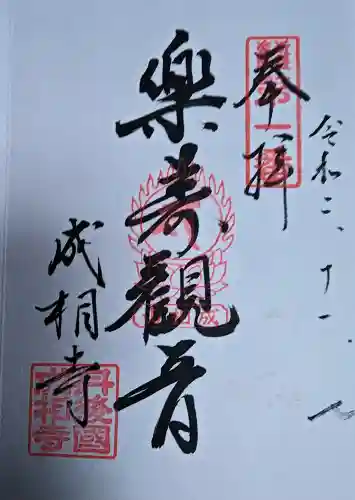 奉拝
令和二、十一、八
樂寿観音
成相寺
丹後國
成相寺